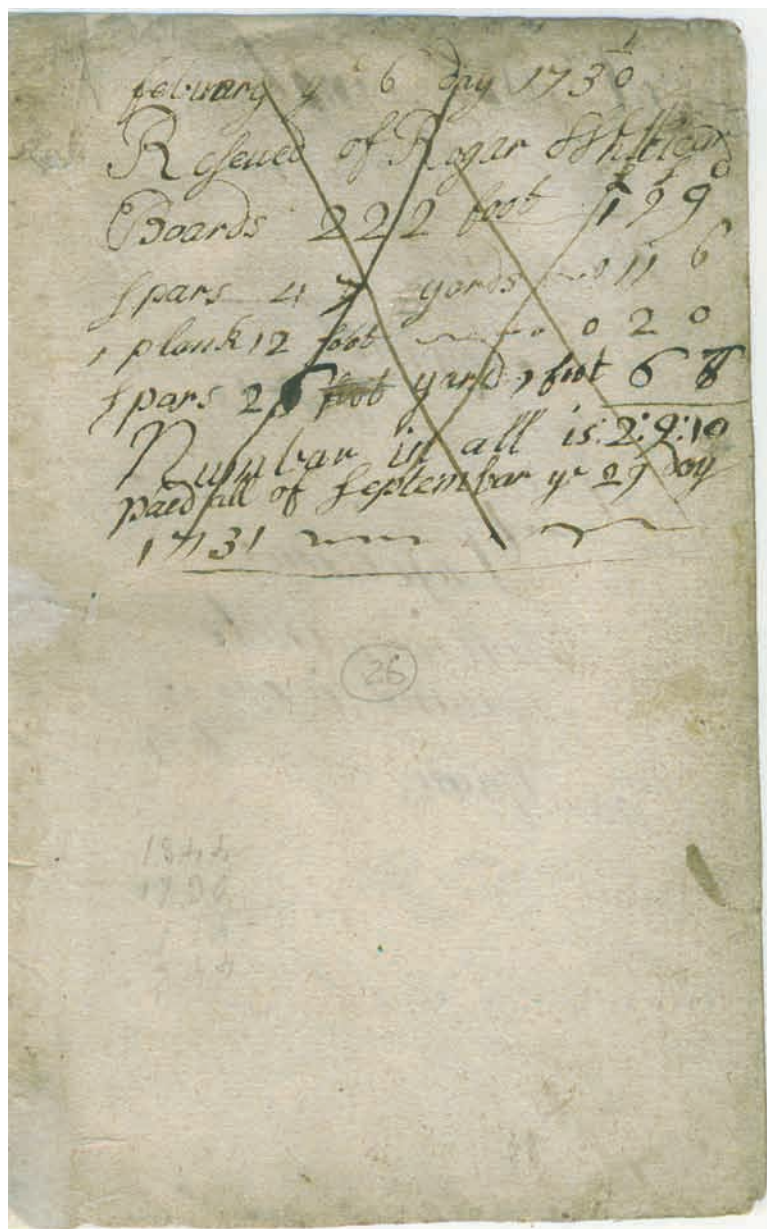 febuary ye 6 day 1730/1
Reseued of Rogar
£ s d
Boards 222 foot 1 9 9
spars 47 yards 0 11 6
1 plank 12 foot 0 2 0
spars 26 yards 1 foot 6 8
Numbar in all is: 2: 9: 10
paed all of septembar ye 29 Day
1731
26
1844